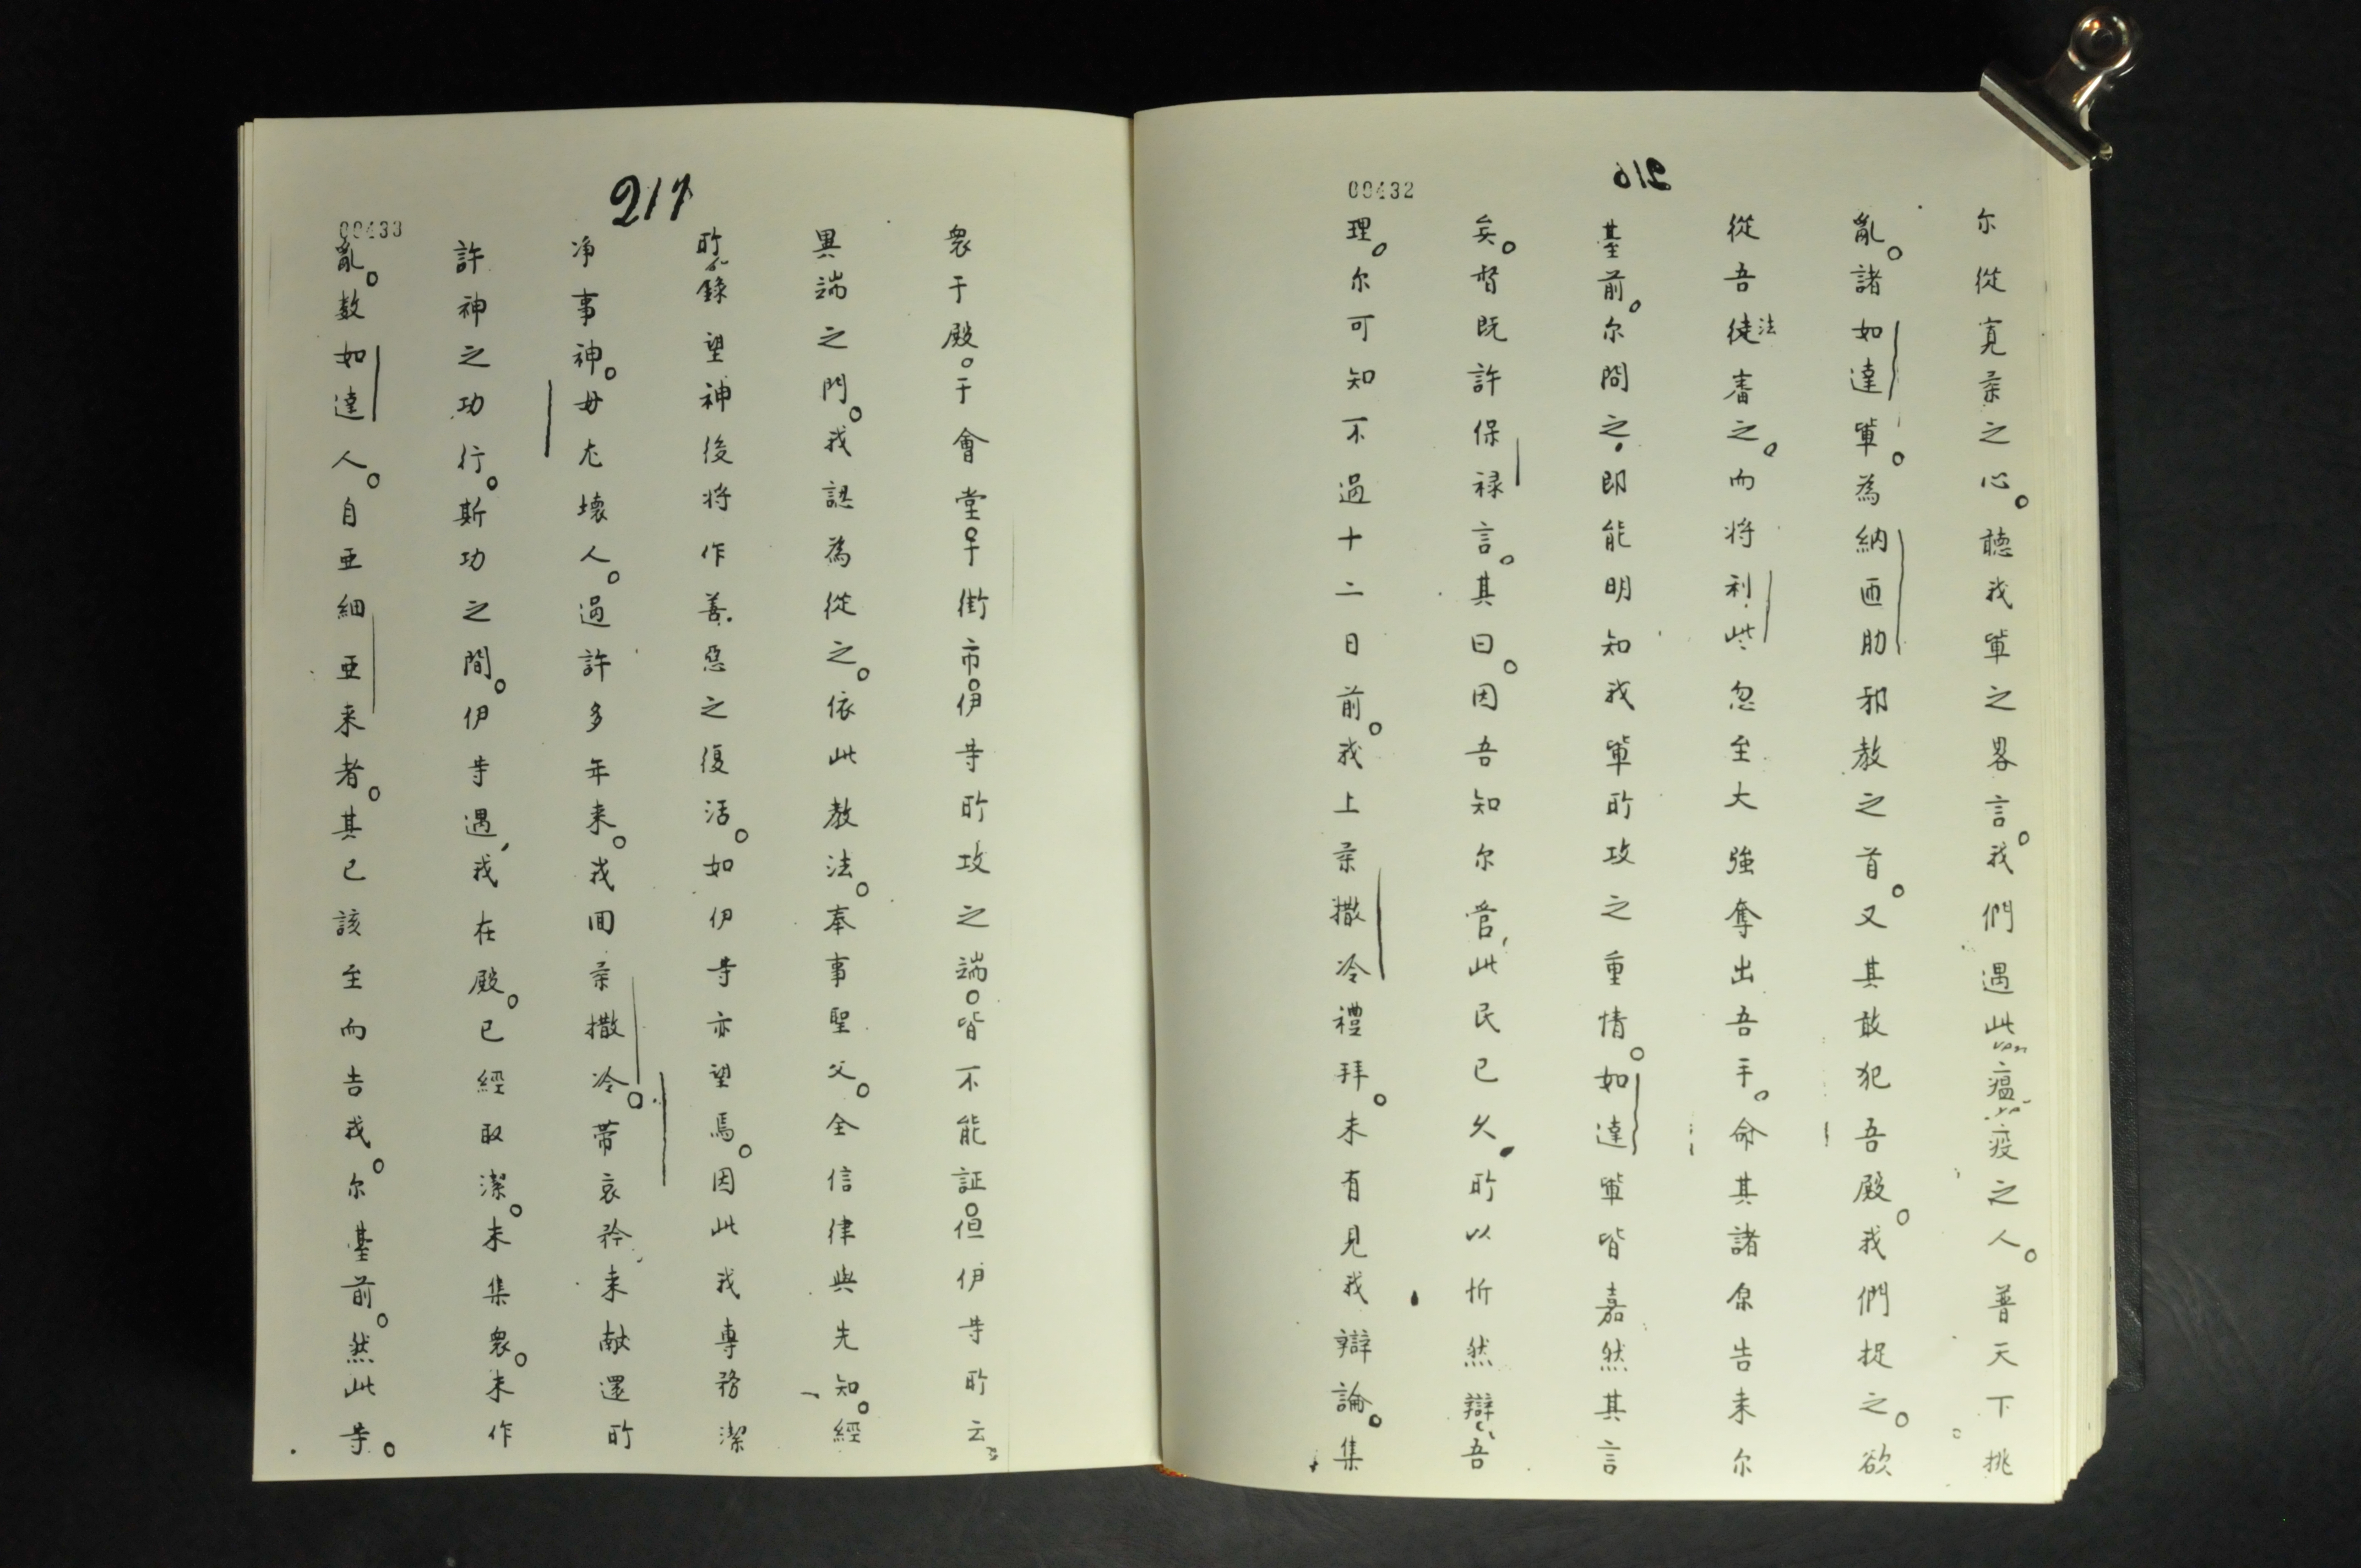 216
00432
尔從寬柔之心。聽我軰之畧言。我們遇此瘟疫之人。普天下挑
亂。諸如達軰。為納匝肋邪教之首。又其敢犯吾殿。我們捉之。欲
從吾徒法審之。而將利些忽至大強奪出吾手。命其諸原告来尔
䑓前。尔問之。即能明知我軰所攻之重情。如達軰皆嘉然其言
矣。督既許保禄言。其曰。因吾知尔管此民已久。所以折然辯吾
理。尔可知不過十二日前。我上柔撒冷禮拜。未有見我辯論。集
217
00433
衆于殿。于會堂。于街市。伊等所攻之端。皆不能証。但伊等所云
異端之門。我認為從之。依此教法。奉事聖父。全信律與先知。經
所錄望神後將作善惡之復活。如伊等亦望焉。因此我專務潔
净事神。毋尤壊人。過許多年来。我囬柔撒冷。帶哀矜来献還所
許神之功行。斯功之間。伊等遇我在殿。已經取潔。未集衆。未作
亂。数如達人。自亜細亜来者。其已該至而告我。尔䑓前。然此等。